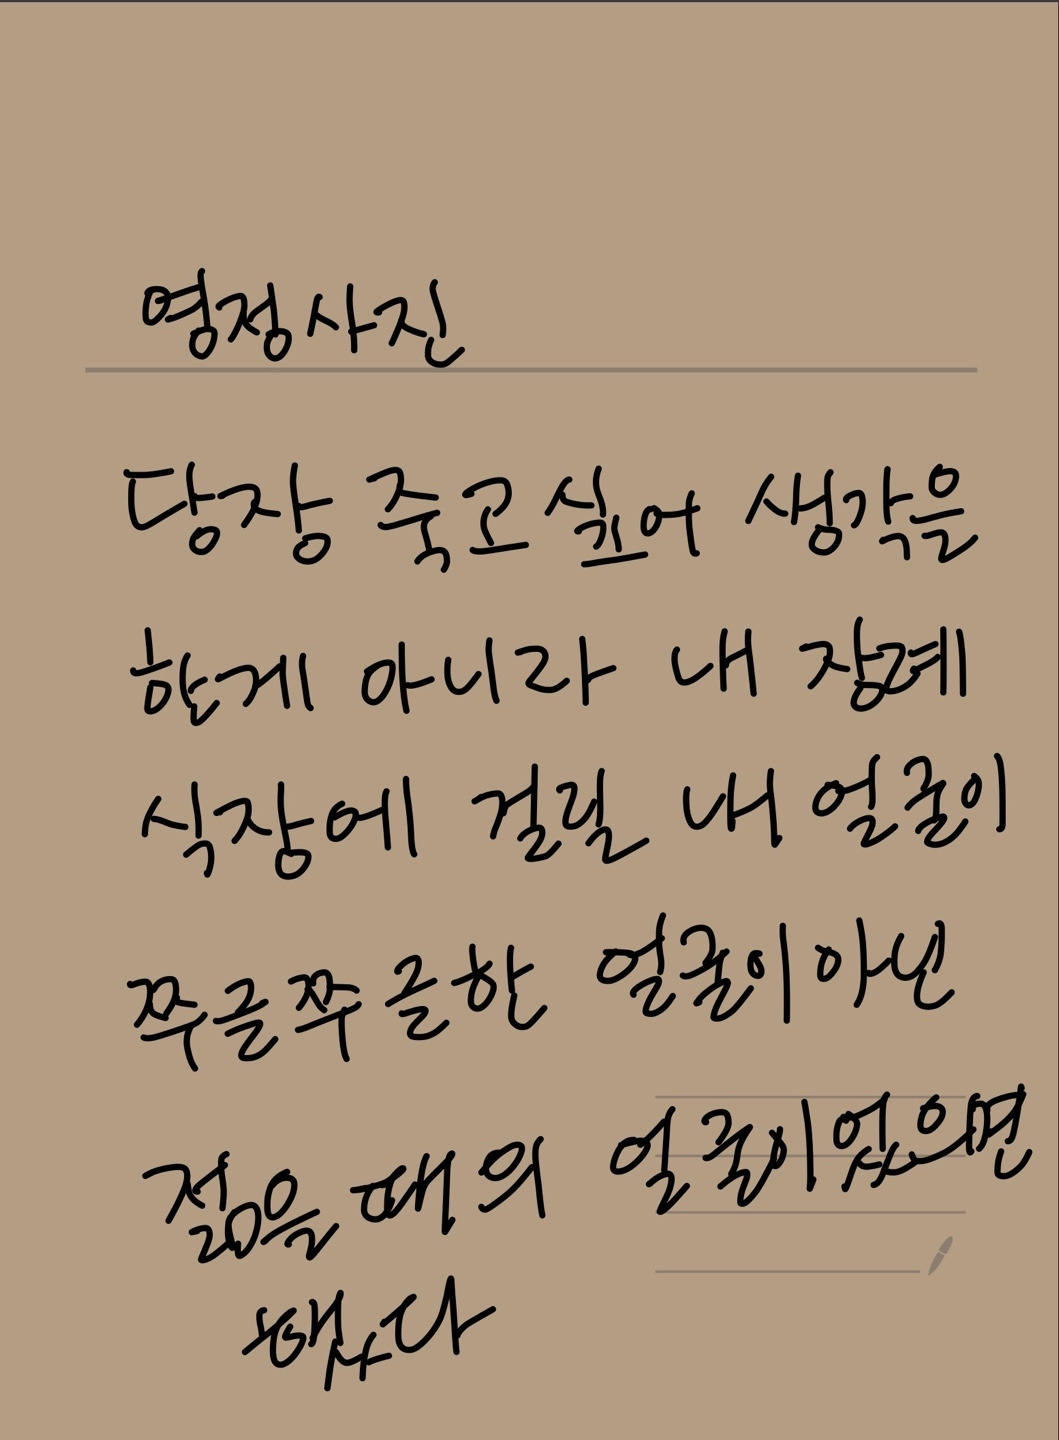 영정사진
당장 죽고싶어 생각을
한게 아니라 내 장례
식장에 걸릴 내 얼굴이
쭈글쭈글한 얼굴이 아닌
젊을 때의 얼굴이었으면
했다